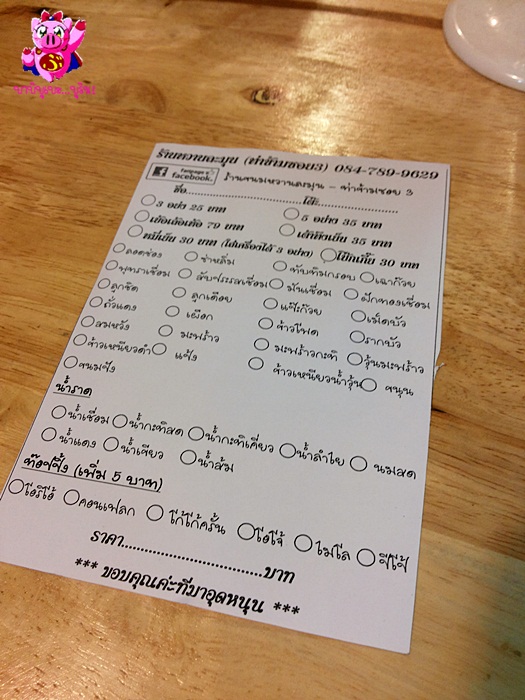 ร้านหวานละมุน (ท่าข้ามซอย3) 084-789-9629
facebook. ร้านขนมหวานละมุน - ท่าข้ามซอย 3
ชื่อ.............................โต๊ะ....................
3 อย่าง 25 บาท 5 อย่าง 35 บาท
เย้อเย้อเย้อ 79 บาท เต้าทึงเย็น 35 บาท
หมี่เย็น 30 บาท (ใส่เครื่องได้ 3 อย่าง) โอ๊กเกี๊ย 30 บาท
ลอดช่อง ซ่าหริ่ม ทับทิมกรอบ เฉาก๊วย
พุทราเชื่อม สับปะรดเชื่อม มันเชื่อม ฟักทองเชื่อม
ลูกชิด ลูกเดือย แปะก๊วย เม็ดบัว
ถั่วแดง เผือก ข้าวโพด รากบัว
ลมหวัง มะพร้าว มะพร้าวกะทิ วุ้นมะพร้าว
ข้าวเหนียวดำ แห้ว ข้าวเหนียวน้ำวุ้น ขนุน
ขนมปัง
น้ำราด
น้ำเชื่อม น้ำกะทิสด น้ำกะทิเคี่ยว น้ำลำไย นมสด
น้ำแดง น้ำเขียว น้ำส้ม
ท๊อปปิ้ง (เพิ่ม 5 บาท)
โอริโอ้ คอนเฟลก โก้โก้ครั้น โอโจ้ ไมโล ปีโป้
ราคา....................................บาท
*** ขอบคุณค่ะที่มาอุดหนุน ***